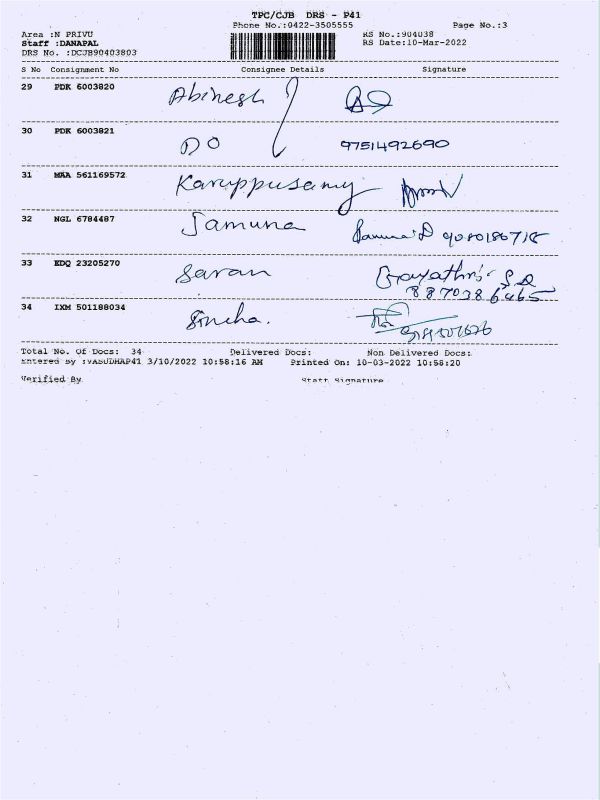 TPC/CJB DRS - P41
Phone No.:0422-3505555 Page No.:3
Area :N PRIVU RS No.:904038
Staff :DANAPAL RS Date:10-Mar-2022
DRS No. :DCJB90403803
S No Consignment No Consignee Details Signature
29 PDK 6003820 Abinesh
30 PDK 6003821 DO 9751492690
31 MAA 561169572 Karuppusamy
32 NGL 6784487 Jamuna
33 EDQ 23205270 Saran Gayathri
8870386465
34 IXM 501188034 Sneha.
Total No. Of Docs: 34 Delivered Docs: Non Delivered Docs:
Entered By :VASUDHAP41 3/10/2022 10:58:16 AM Printed On: 10-03-2022 10:58:20
Verified By Staff Signature